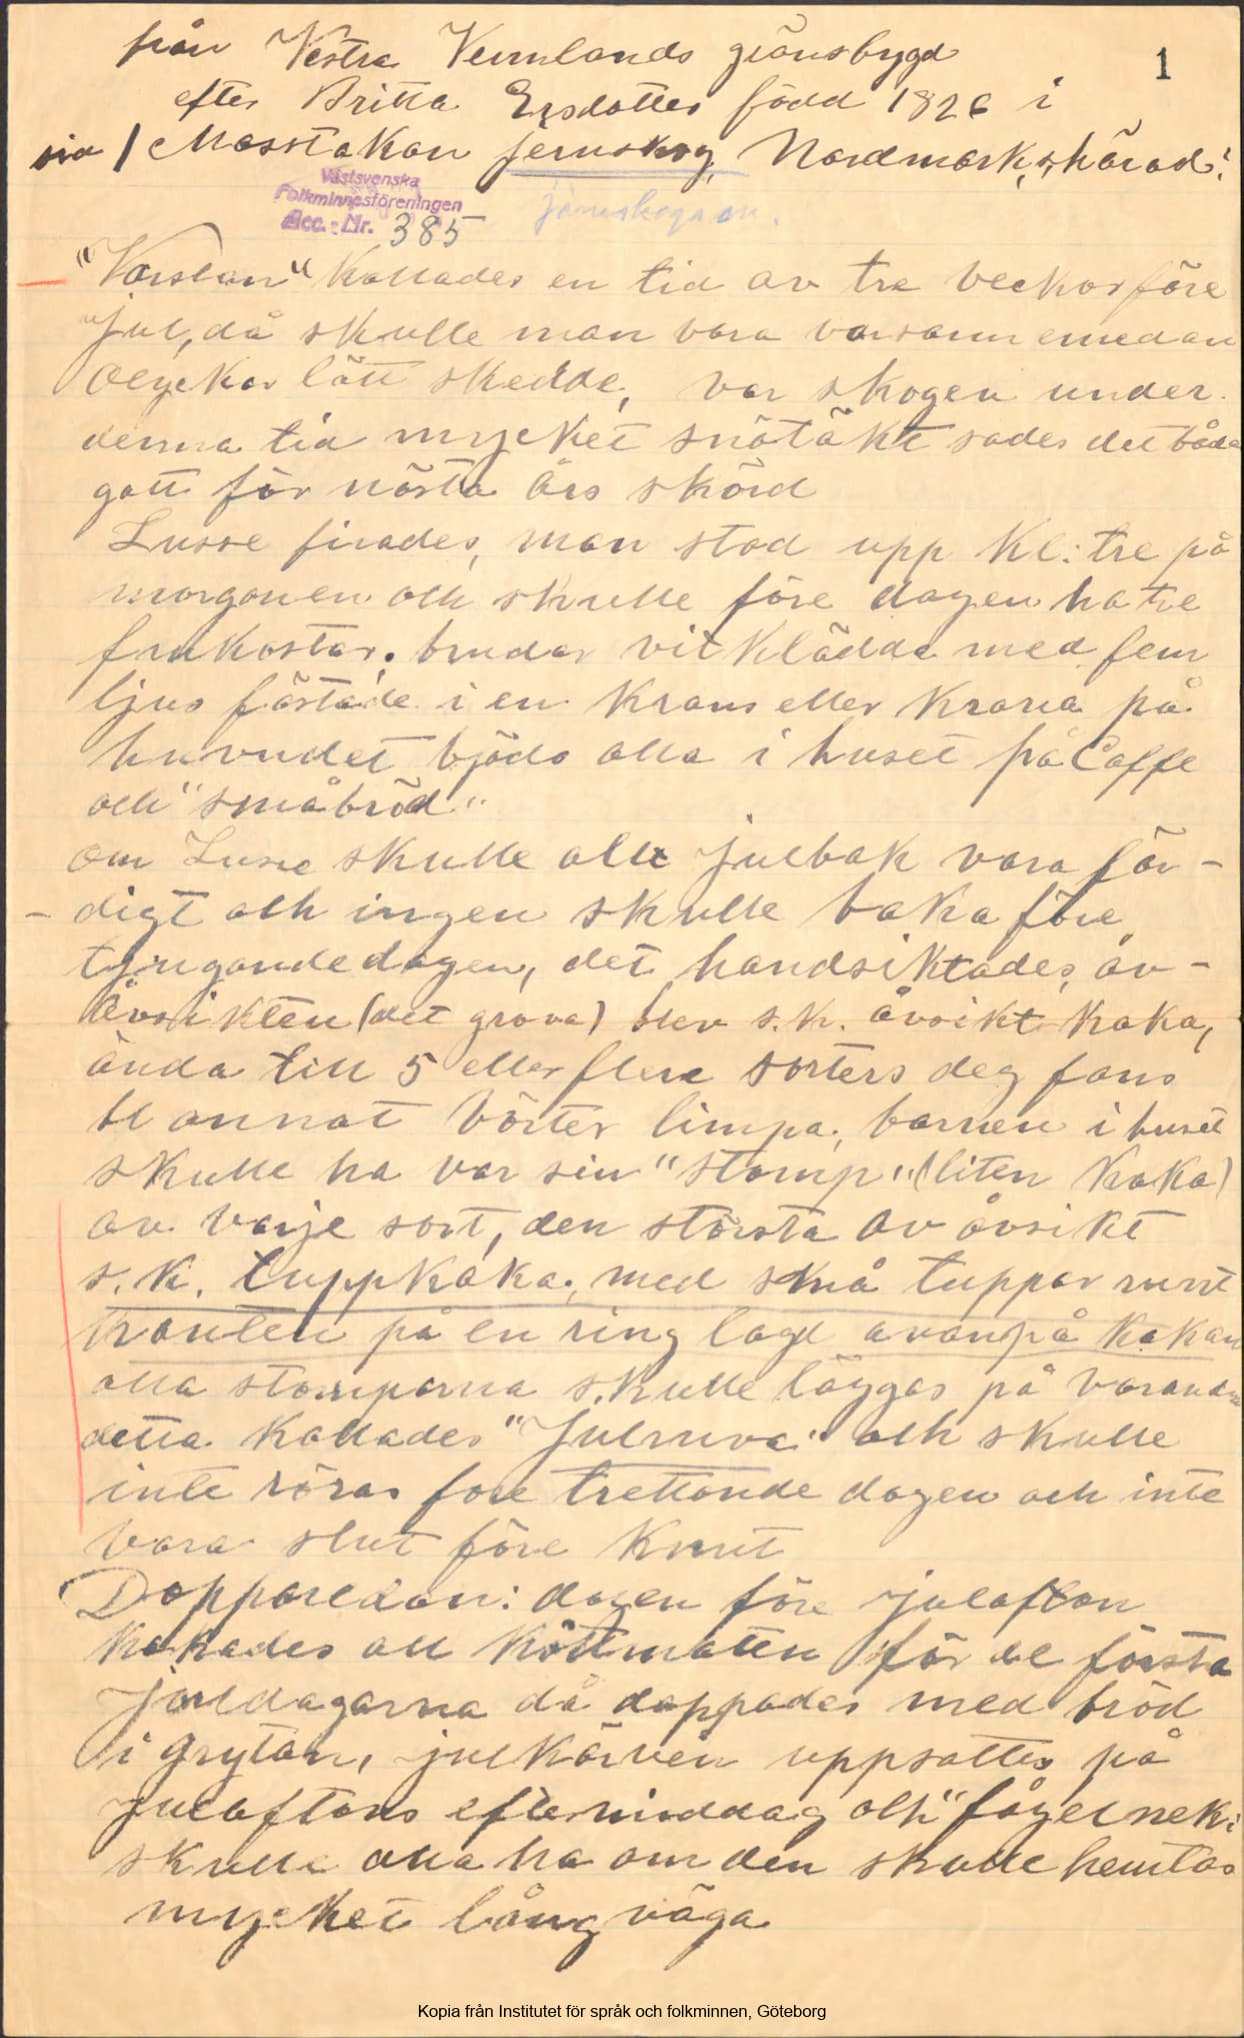 från Vestra Vermlands gränsbygd
1
efter Britta Ersdotter född 1826 i
sid 1 Mosstakan Jernskog, Nordmarks härad.
Västsvenska
Folkminnesföreningen
Acc.-Nr. 385
Järnskogs sn.
"Varslan" kallades en tid av tre veckor före
Jul, då skulle man vara varsam emedan
olyckor lätt skedde, var skogen under
denna tid mycket snötäkt sades det båda
gott för nästa års skörd
Lusse firades, man stod upp kl: tre på
morgonen och skulle före dagen ha tre
frukostar. brudar vitklädda med fem
ljus fästade i en krans eller krona på
huvudet bjöds alla i huset på Caffe
och "småbröd"
om Lusse skulle allt julbak vara fär-
- digt och ingen skulle baka före
tjugandedagen, det handsiktades, av-
åvsikten (det grova) blev s.k. åvsikt kaka,
ända till 5 eller flera sorters deg fans
bl annat Vörter limpa, barnen i huset
skulle ha var sin "stomp" (liten kaka)
av varje sort, den största av åvsikt
s.k. tuppkaka, med små tuppar runt
kanten på en ring lagd ovanpå kakan
alla stomparna skulle läggas på varandra
detta kallades "Julruva" och skulle
inte röras före trettonde dagen och inte
vara slut före Knut
Dopparedan: dagen före julafton
kokades all köttmaten för de första
juldagarna då doppades med bröd
i grytan, julkärven uppsattes på
julaftons eftermiddag och "fågelnek:
skulle alla ha om den skulle hemtas
mycket lång väga
Kopia från Institutet för språk och folkminnen, Göteborg